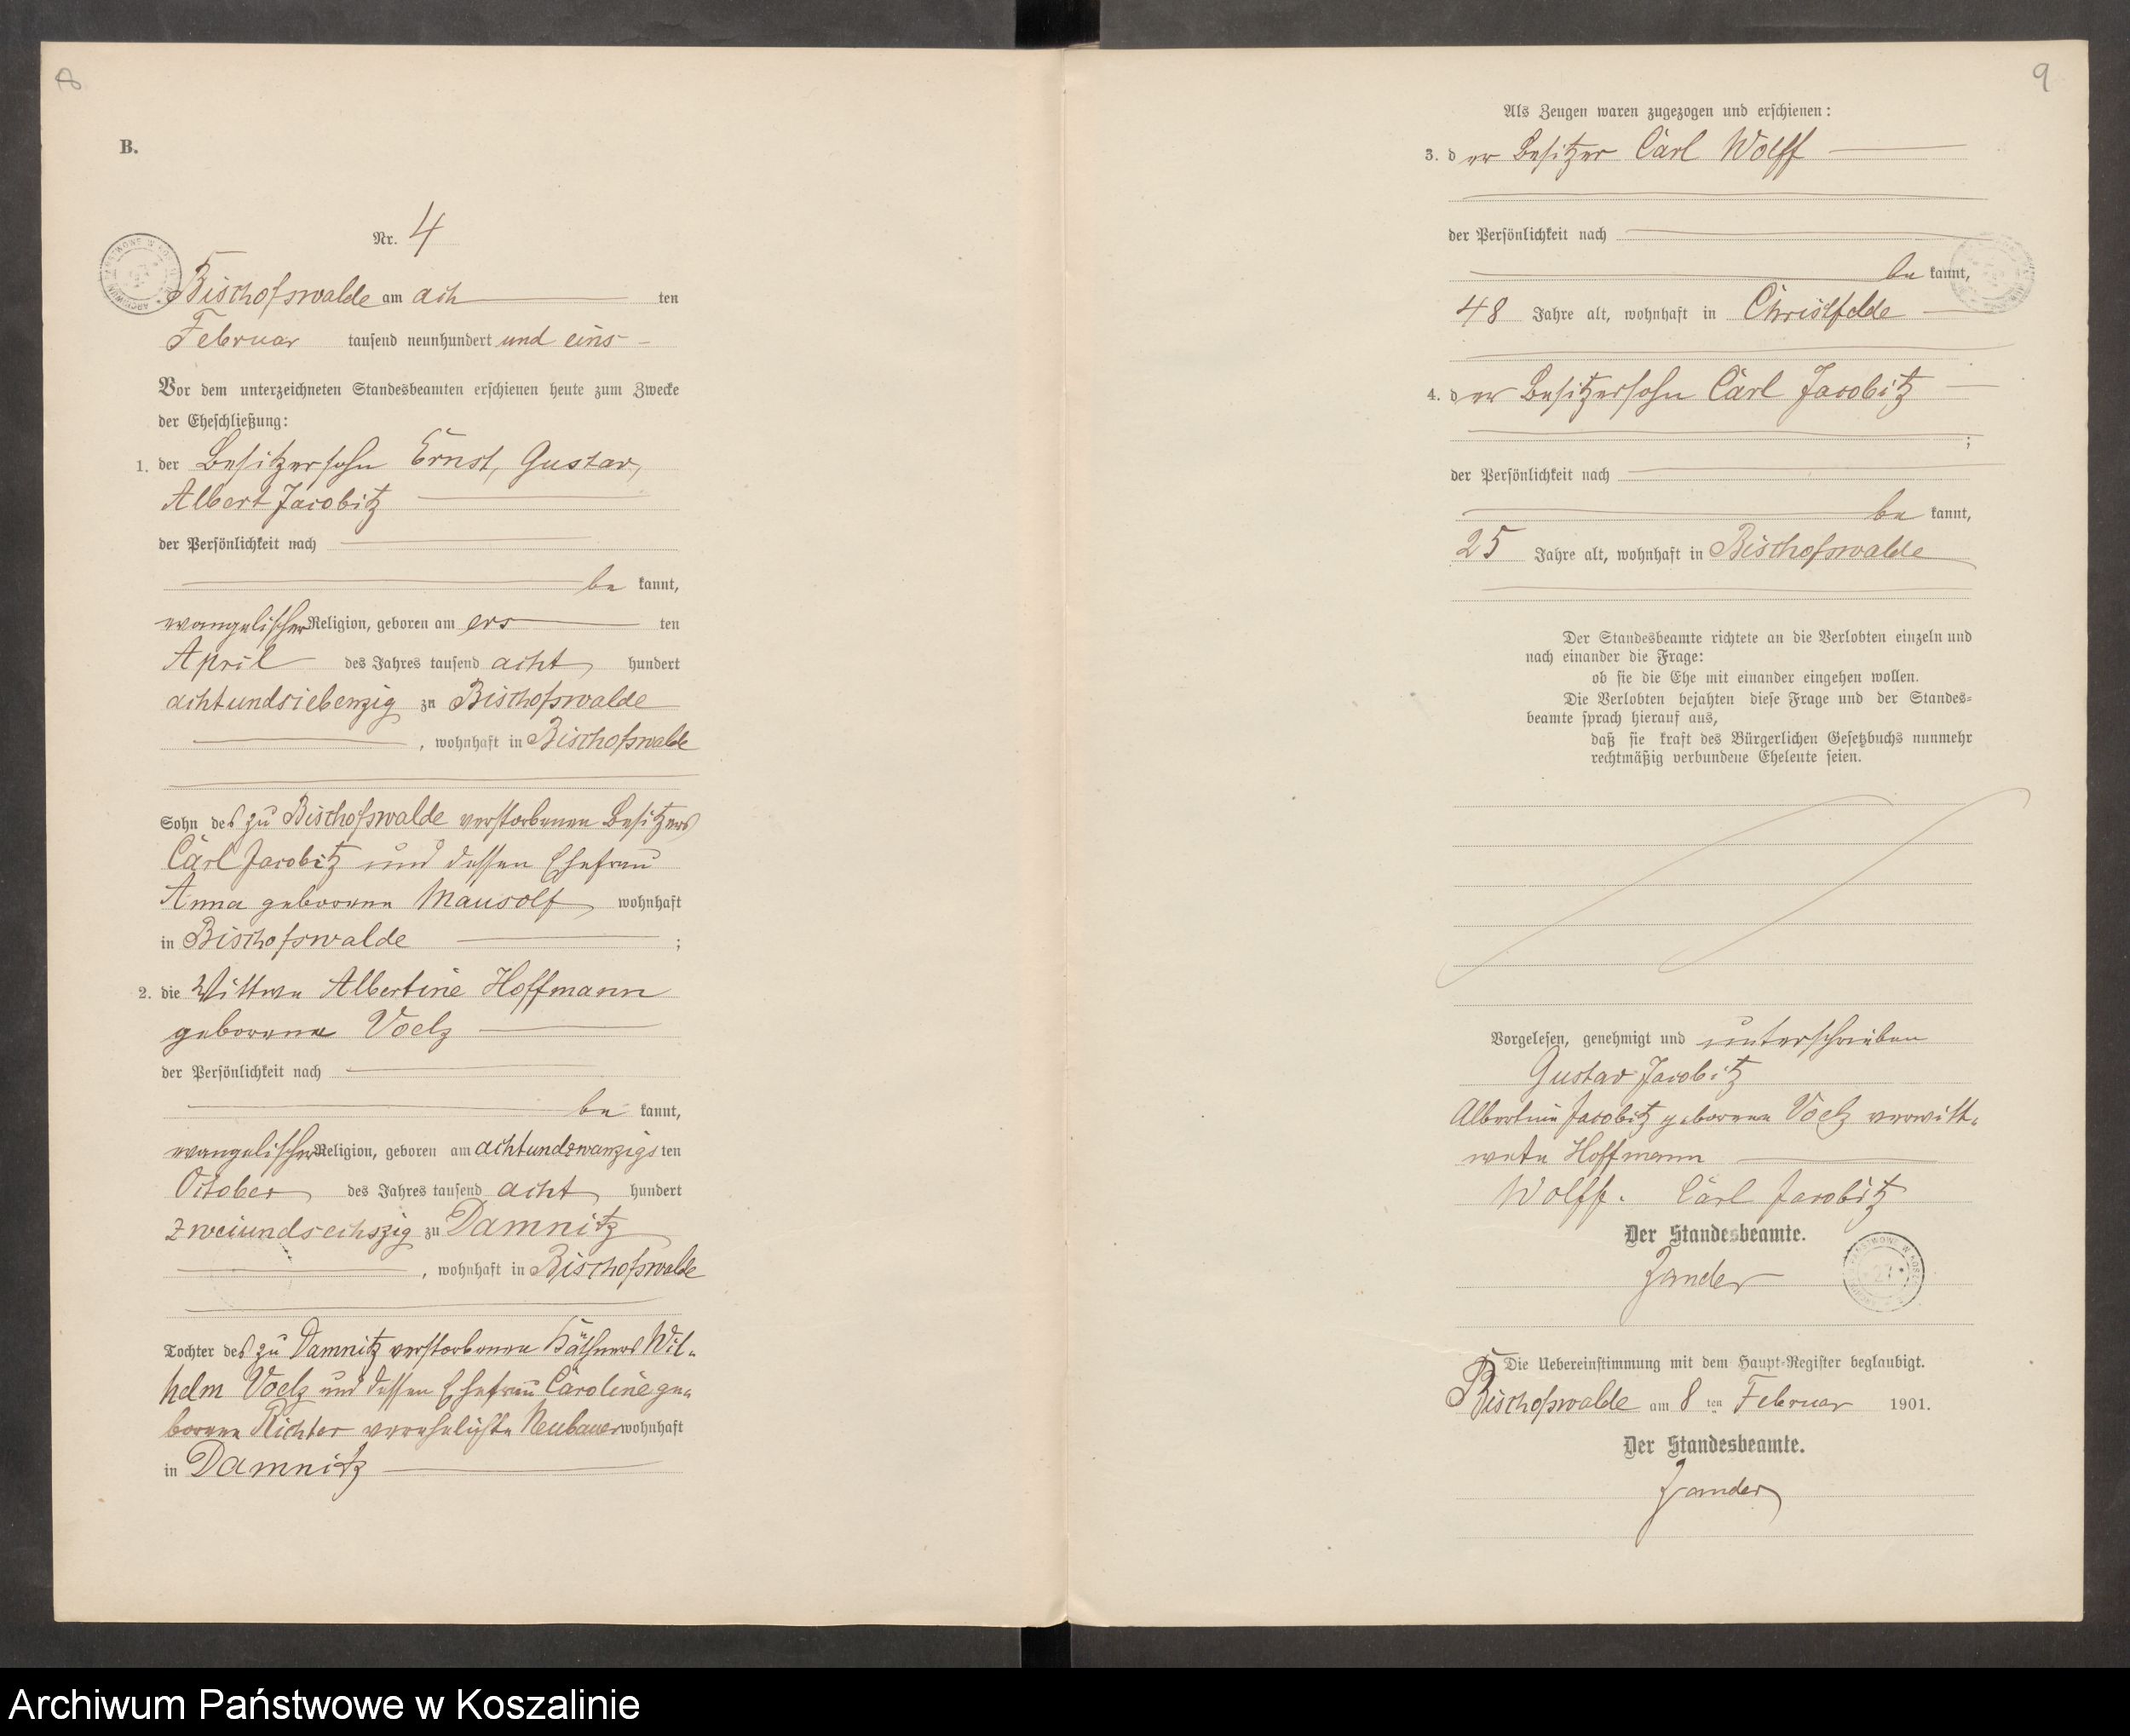 8
B.
Nr. 4
Bischofswalde am ach ten
Februar tausend neunhundert und eins
Vor dem unterzeichneten Standesbeamten erschienen heute zum Zwecke
der Eheschließung:
1. der Besitzersohn Ernst, Gustav,
Albert Jacobitz
der Persönlichkeit nach
be kannt,
evangelischer Religion, geboren am ers ten
April des Jahres tausend acht hundert
achtundsiebenzig zu Bischofswalde
, wohnhaft in Bischofswalde
Sohn des zu Bischofswalde verstorbenen Besitzers
Carl Jacobitz und dessen Ehefrau
Anna geborene Mausolf wohnhaft
in Bischofswalde ;
2. die Wittwe Albertine Hoffmann
geborene Voelz
der Persönlichkeit nach
be kannt,
evangelischer Religion, geboren am achtundzwanzigs ten
October des Jahres tausend acht hundert
zweiundsechszig zu Damnitz
, wohnhaft in Bischofswalde
Tochter des zu Damnitz verstorbenen Käthners Wil-
helm Voelz und dessen Ehefrau Caroline ge-
borene Richter verehelichte Neubauer wohnhaft
in Damnitz
9
Als Zeugen waren zugezogen und erschienen:
3. der Besitzer Carl Wolff
der Persönlichkeit nach
be kannt,
48 Jahre alt, wohnhaft in Christfelde
4. der Besitzersohn Carl Jacobitz
;
der Persönlichkeit nach
be kannt,
25 Jahre alt, wohnhaft in Bischofswalde
Der Standesbeamte richtete an die Verlobten einzeln und
nach einander die Frage:
ob sie die Ehe mit einander eingehen wollen.
Die Verlobten bejahten diese Frage und der Standes-
beamte sprach hierauf aus,
daß sie kraft des Bürgerlichen Gesetzbuchs nunmehr
rechtmäßig verbundene Eheleute seien.
Vorgelesen, genehmigt und unterschrieben
Gustav Jacobitz
Albertine Jacobitz geborene Voelz verwitt-
wete Hoffmann
Wolff. Carl Jacobitz
Der Standesbeamte.
Zander
Die Uebereinstimmung mit dem Haupt-Register beglaubigt.
Bischofswalde am 8 ten Februar 1901.
Der Standesbeamte.
Zander
Archiwum Państwowe w Koszalinie